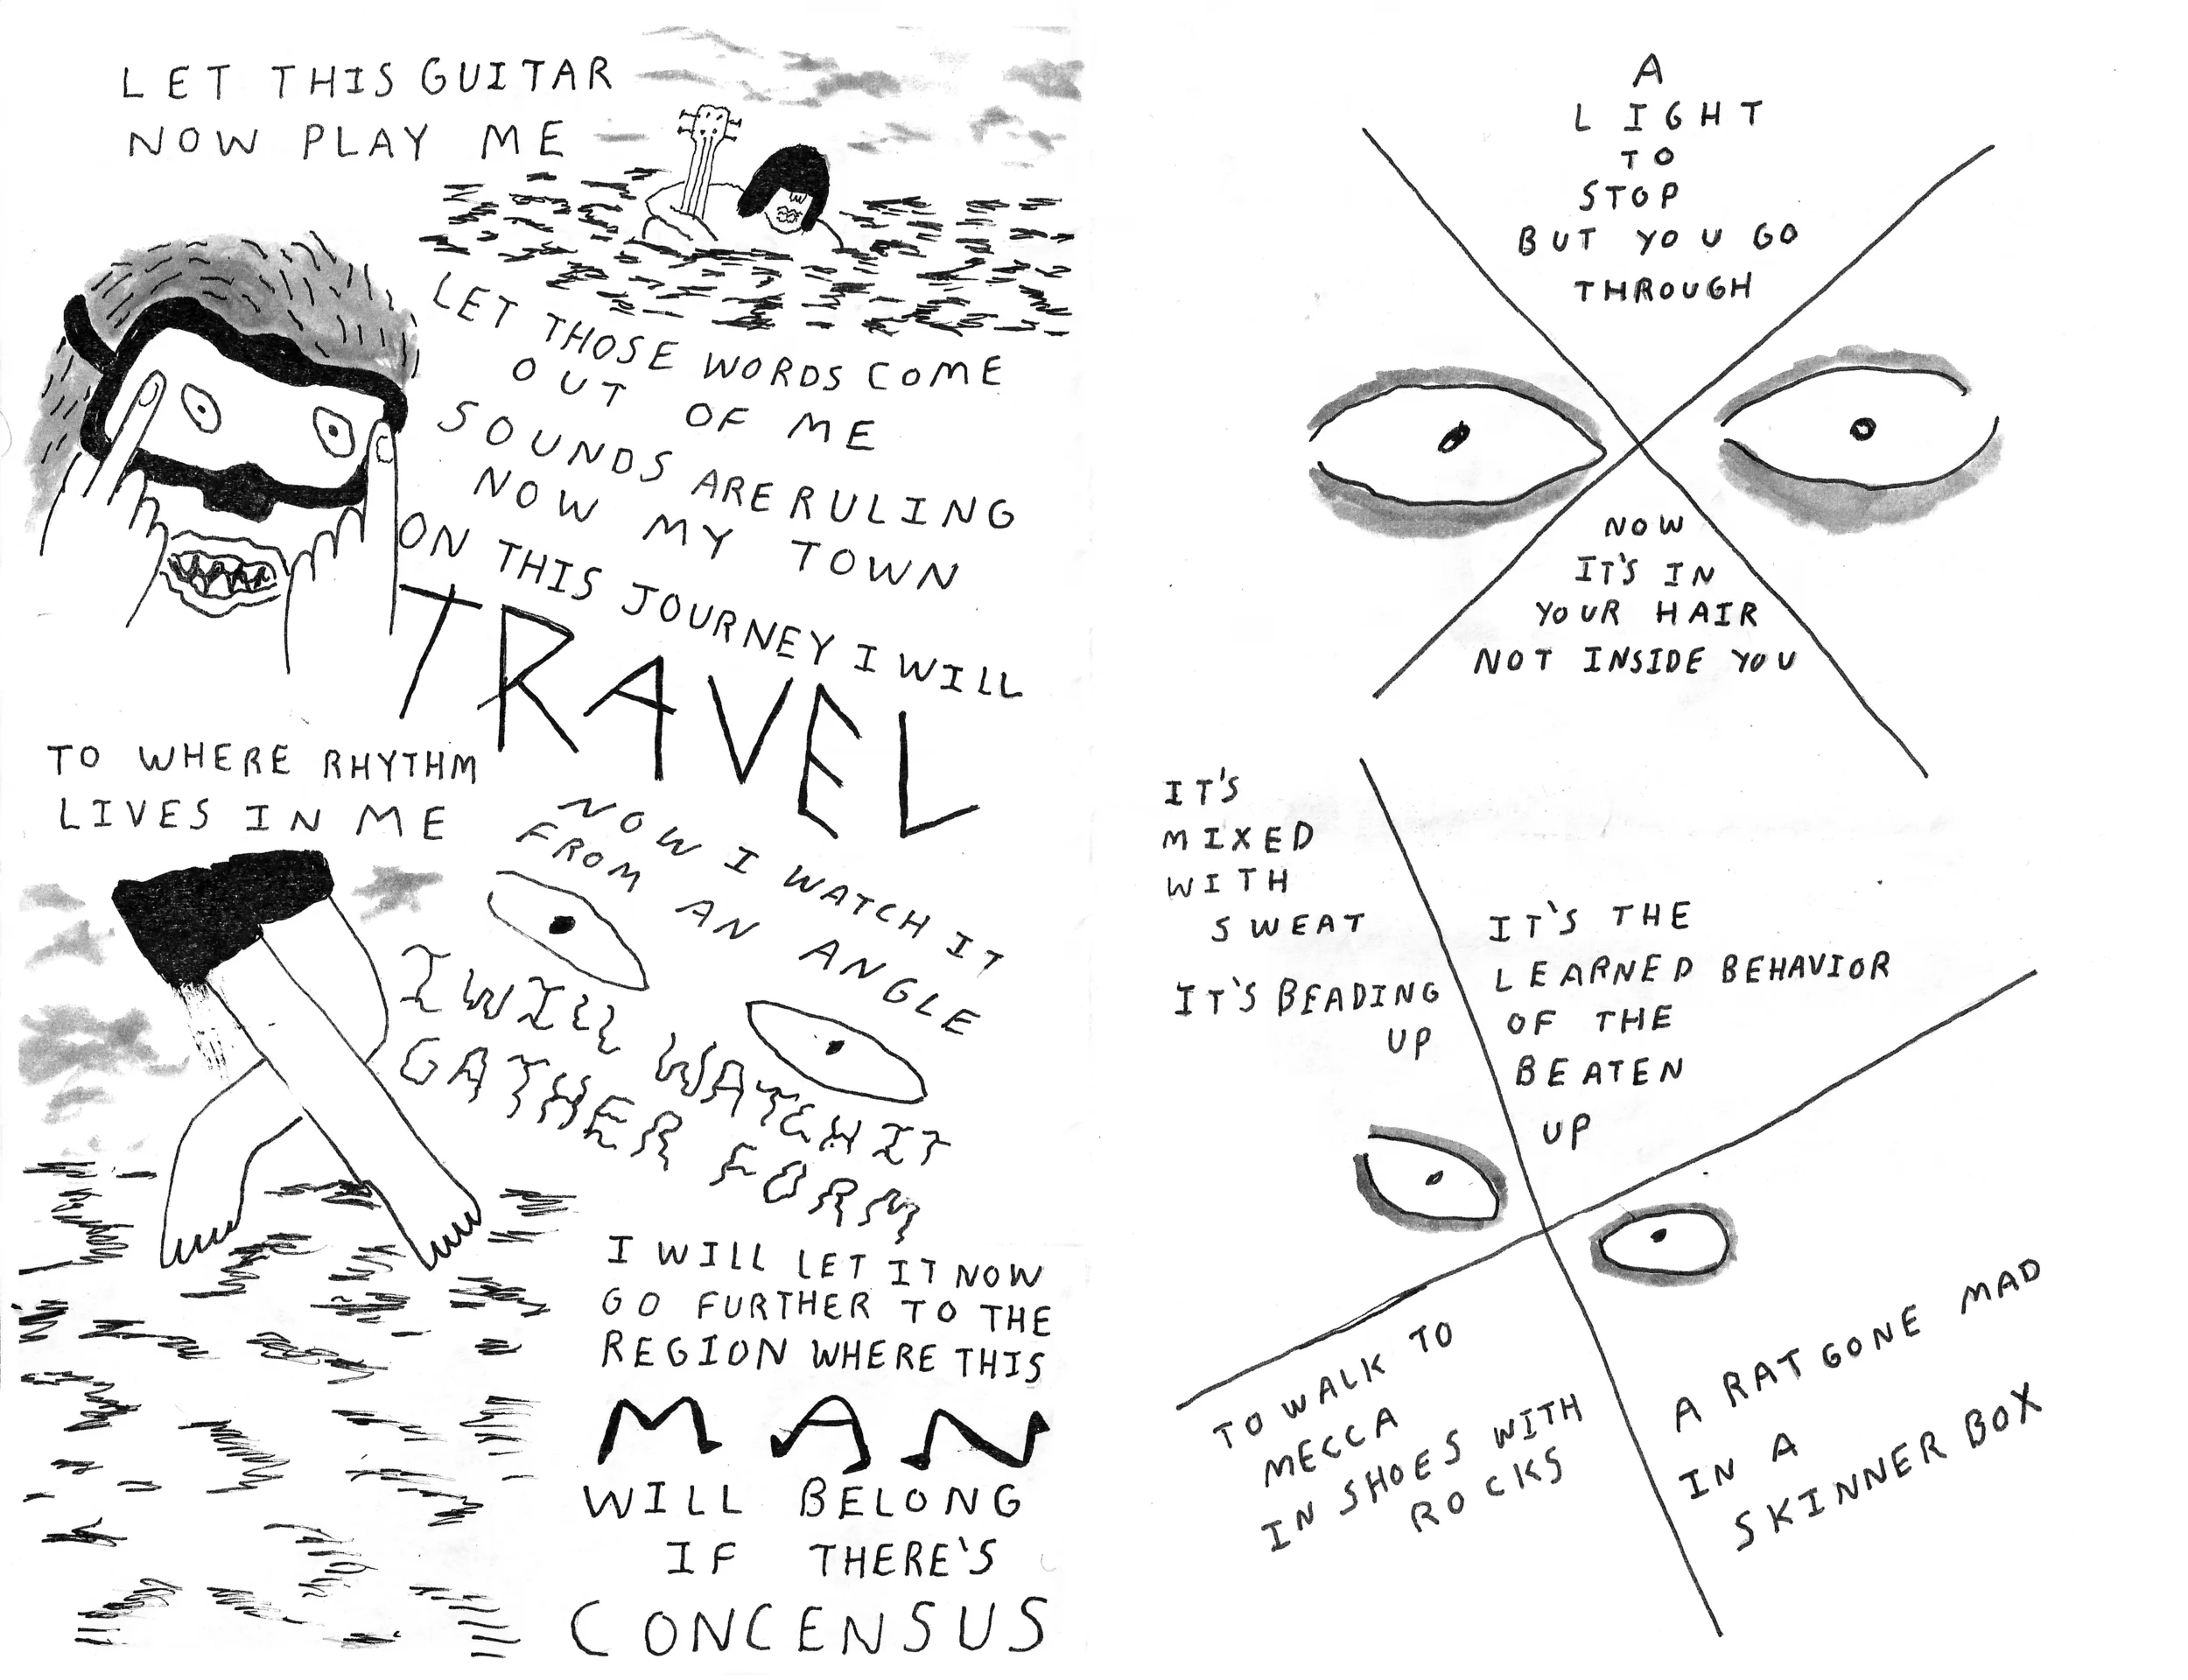 LET THIS GUITAR
NOW PLAY ME
LET THOSE WORDS COME
OUT OF ME
SOUNDS ARE RULING
NOW MY TOWN
ON THIS JOURNEY I WILL
TRAVEL
TO WHERE RHYTHM
LIVES IN ME
NOW I WATCH IT
FROM AN ANGLE
I WILL WATCH IT
GATHER FORM
I WILL LET IT NOW
GO FURTHER TO THE
REGION WHERE THIS
MAN
WILL BELONG
IF THERE'S
CONCENSUS
A
LIGHT
TO
STOP
BUT YOU GO
THROUGH
NOW
IT'S IN
YOUR HAIR
NOT INSIDE YOU
IT'S
MIXED
WITH
SWEAT
IT'S BEADING
UP
IT'S THE
LEARNED BEHAVIOR
OF THE
BEATEN
UP
TO WALK TO
MECCA
IN SHOES WITH
ROCKS
A RAT GONE MAD
IN A
SKINNER BOX